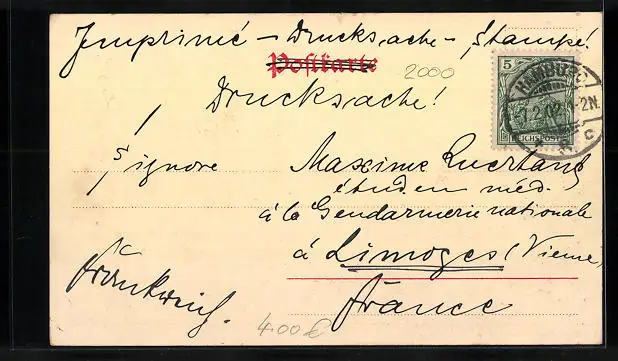 Imprimé – Drucksache – Stampé!
Postkarte
2000
Drucksache!
5
HAMBURG
7.2.02. 1-2N.
REICHSPOST
C
Signore Maxime
étud. en méd.
à la Gendarmerie nationale
à Limoges (Vienne)
Frankreich.
France
400 €